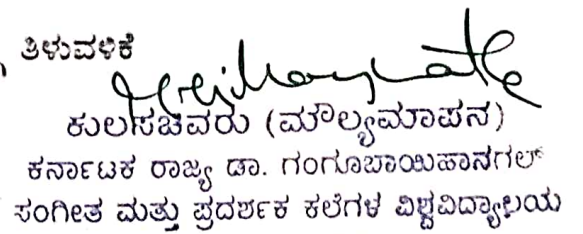 ತಿಳುವಳಿಕೆ
ಕುಲಸಚಿವರು (ಮೌಲ್ಯಮಾಪನ)
ಕರ್ನಾಟಕ ರಾಜ್ಯ ಡಾ. ಗಂಗೂಬಾಯಿಹಾನಗಲ್
ಸಂಗೀತ ಮತ್ತು ಪ್ರದರ್ಶಕ ಕಲೆಗಳ ವಿಶ್ವವಿದ್ಯಾಲಯ